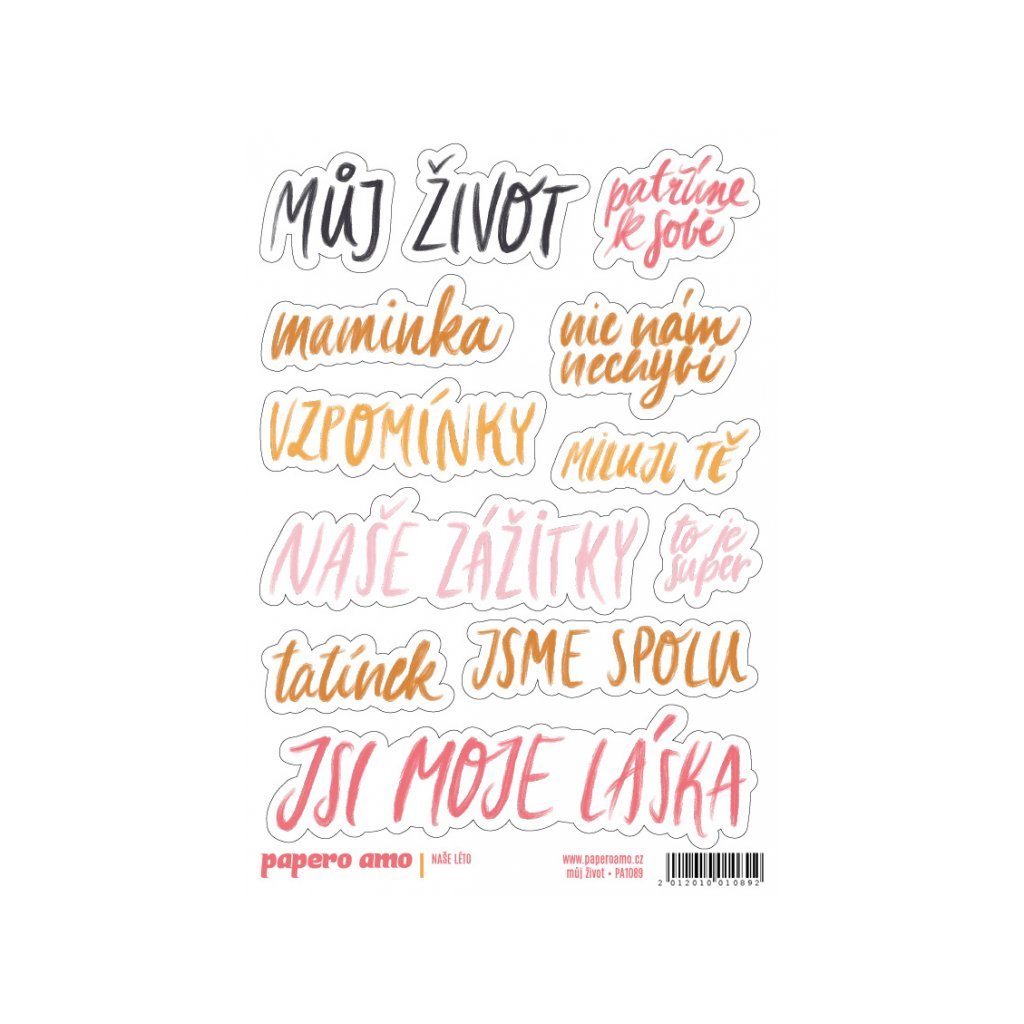 MŮJ ŽIVOT
patříme
k sobě
maminka
nic nám
nechybí
VZPOMÍNKY
MILUJI TĚ
NAŠE ZÁŽITKY
to je
super
tatínek
JSME SPOLU
JSI MOJE LÁSKA
papero amo | NAŠE LÉTO
www.paperoamo.cz
můj život • PA1089
2 012010 010892